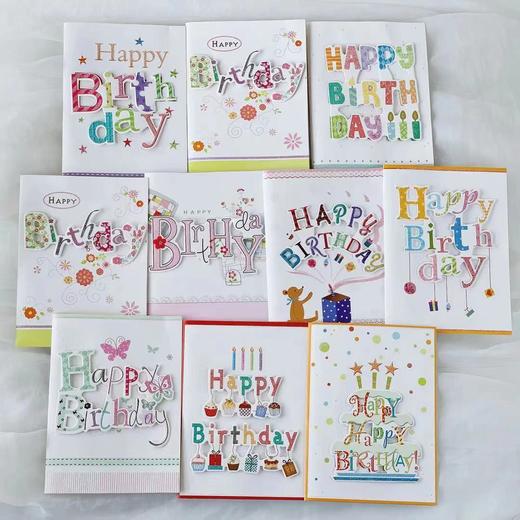 Happy
Birth
day
HAPPY
Birthday
HAPPY
BIRTH
DAY
HAPPY
Birthday
HAPPY
BIrtHdaY
HAPPY
BIRTHDAY
Happy
Birth
day
Happy
Birthday
Happy
Birthday
HAPPY
Happy
BIRTHDAY!